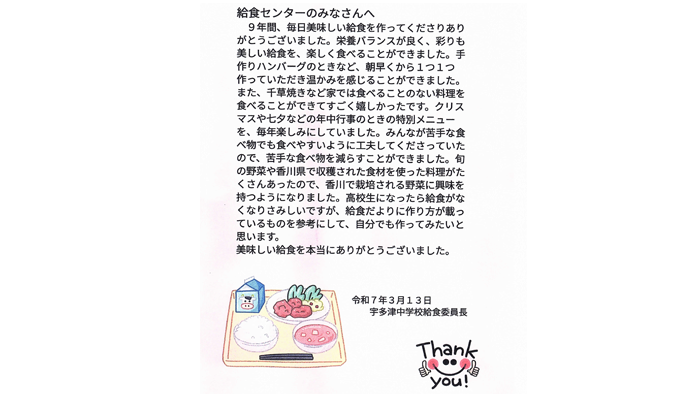 給食センターのみなさんへ
９年間、毎日美味しい給食を作ってくださりあり
がとうございました。栄養バランスが良く、彩りも
美しい給食を、楽しく食べることができました。手
作りハンバーグのときなど、朝早くから１つ１つ
作っていただき温かみを感じることができました。
また、千草焼きなど家では食べることのない料理を
食べることができてすごく嬉しかったです。クリス
マスや七夕などの年中行事のときの特別メニュー
を、毎年楽しみにしていました。みんなが苦手な食
べ物でも食べやすいように工夫してくださっていた
ので、苦手な食べ物を減らすことができました。旬
の野菜や香川県で収穫された食材を使った料理がた
くさんあったので、香川で栽培される野菜に興味を
持つようになりました。高校生になったら給食がな
くなりさみしいですが、給食だよりに作り方が載っ
ているものを参考にして、自分でも作ってみたいと
思います。
美味しい給食を本当にありがとうございました。
令和７年３月１３日
宇多津中学校給食委員長
Thank
you!